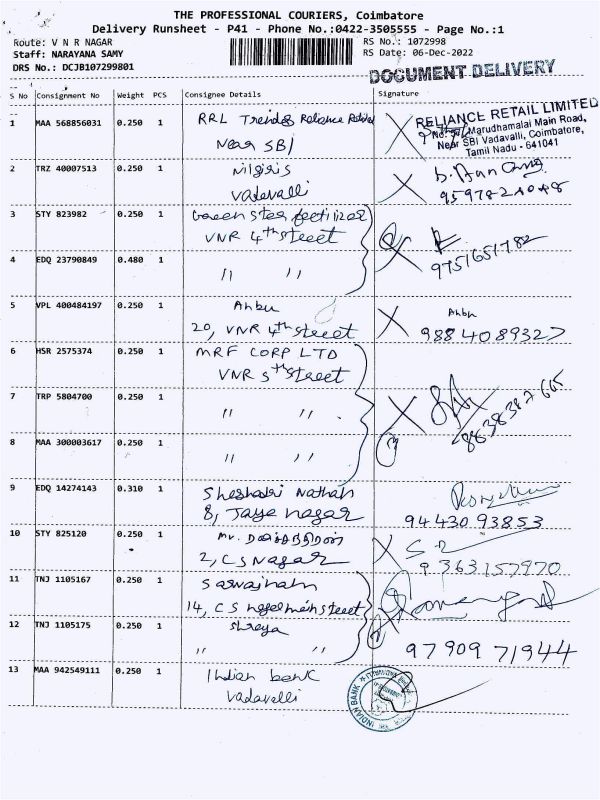 THE PROFESSIONAL COURIERS, Coimbatore
Delivery Runsheet - P41 - Phone No.:0422-3505555 - Page No.:1
Route: V N R NAGAR
Staff: NARAYANA SAMY
DRS No.: DCJB107299801
RS No.: 1072998
RS Date: 06-Dec-2022
DOCUMENT DELIVERY
S No Consignment No Weight PCS Consignee Details Signature
1 MAA 568856031 0.250 1 RRL Trends Reliance Retail
Near SBI
RELIANCE RETAIL LIMITED
Marudhamalai Main Road,
Near SBI Vadavalli, Coimbatore,
Tamil Nadu - 641041
2 TRZ 40007513 0.250 1 Nilgiris
Vadavalli
3 STY 823982 0.250 1 Green Star fertilizer
VNR 4th street
9751651782
4 EDQ 23790849 0.480 1 " "
5 VPL 400484197 0.250 1 Anbu
20, VNR 4th street
Anbu
9884089327
6 HSR 2575374 0.250 1 MRF CORP LTD
VNR 5th street
7 TRP 5804700 0.250 1 " "
8838387665
8 MAA 300003617 0.250 1 " "
9 EDQ 14274143 0.310 1 Sheshadri Nathan
8, Jaya nagar
94430 93853
10 STY 825120 0.250 1 Mr.
2, CS Nagar
9363157970
11 TNJ 1105167 0.250 1
14, C S
12 TNJ 1105175 0.250 1 Shreya
" "
97909 71944
13 MAA 942549111 0.250 1 Indian bank
Vadavalli
INDIAN BANK